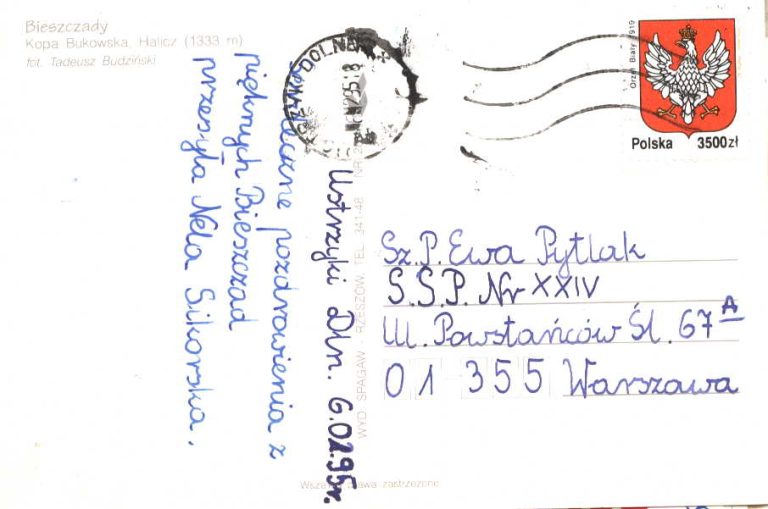 Bieszczady
Kopa Bukowska, Halicz (1333 m)
fot. Tadeusz Budziński
Orzeł Biały 1919
Polska 3500 zł
Ustrzyki Dln. 6.02.95r.
Serdeczne pozdrowienia z
pięknych Bieszczad
przesyła Nela Sikorska.
WYD. SPAGAW - RZESZÓW, TEL. 341-48
Sz.P. Ewa Pytlak
S.S.P. Nr XXIV
Ul. Powstańców Śl. 67 A
01 355 Warszawa
zastrzeżone